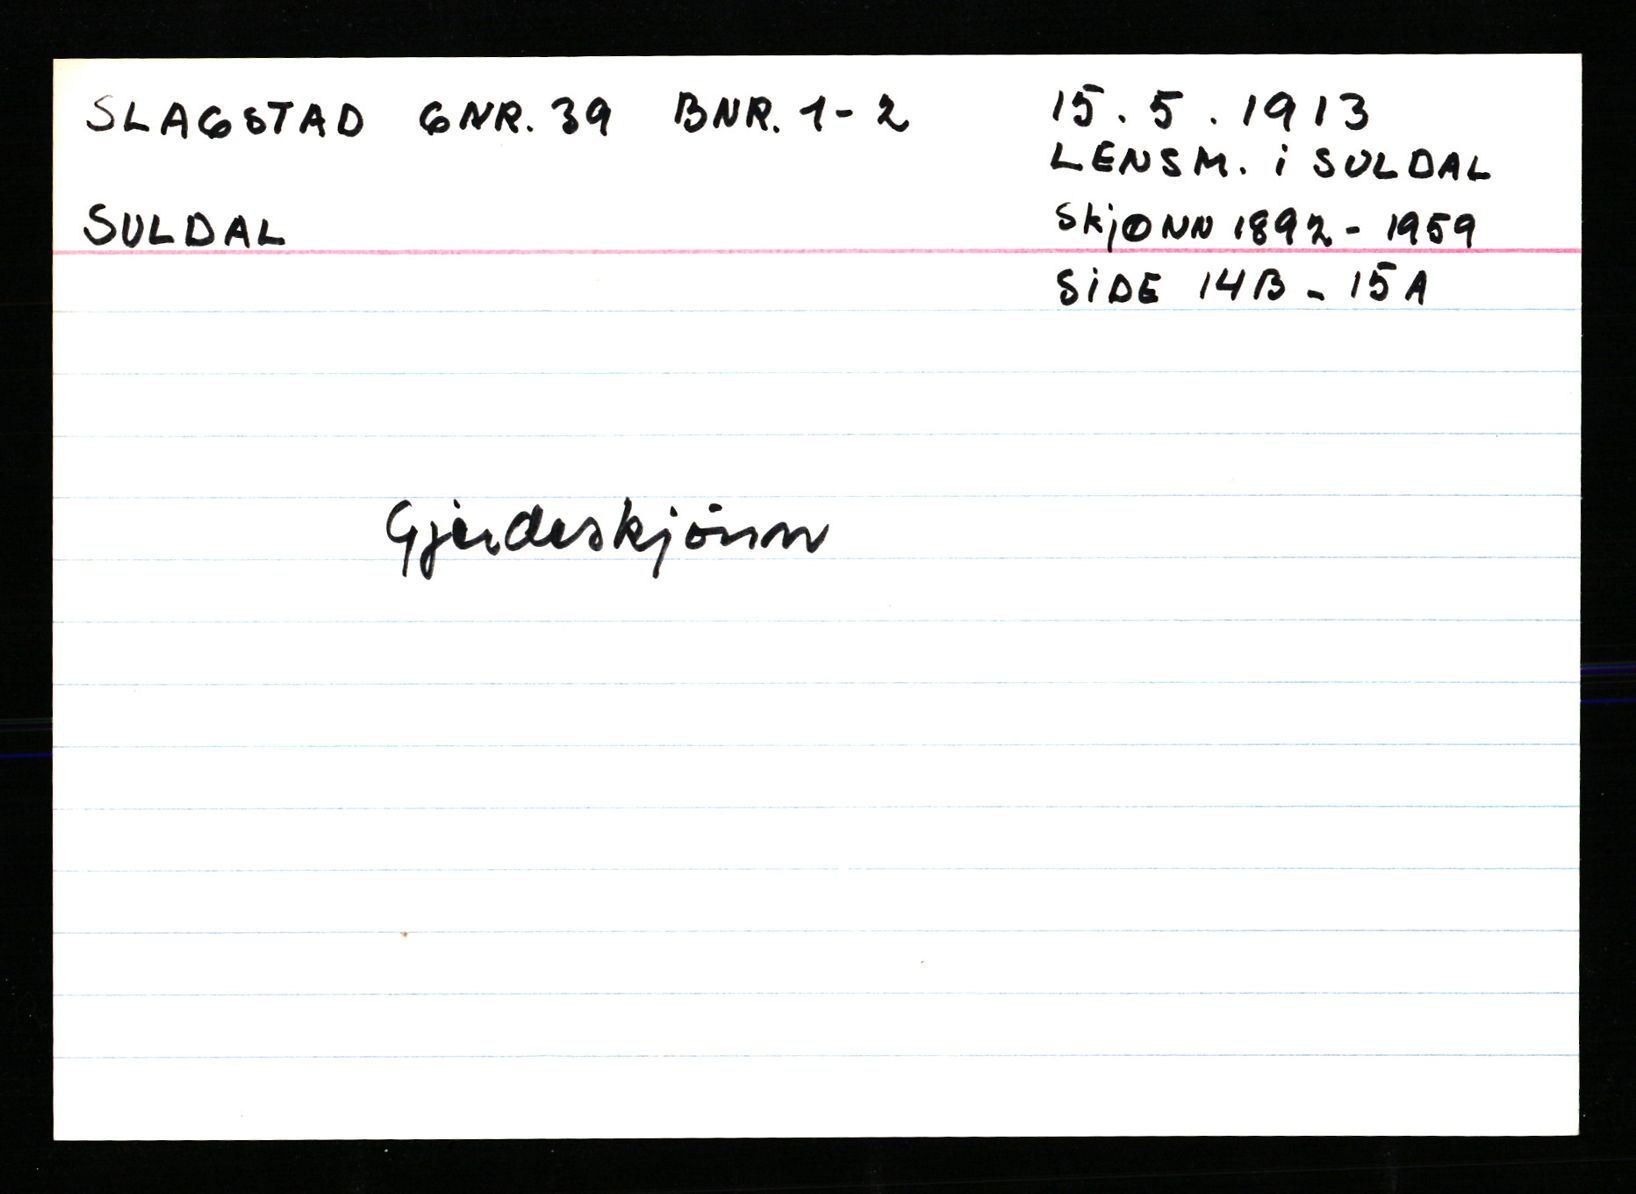 SLAGSTAD GNR. 39 BNR. 1-2
SULDAL
15. 5. 1913
LENSM. i SULDAL
SkjØNN 1892 - 1959
SiDE 14B - 15A
Gjerdeskjønn